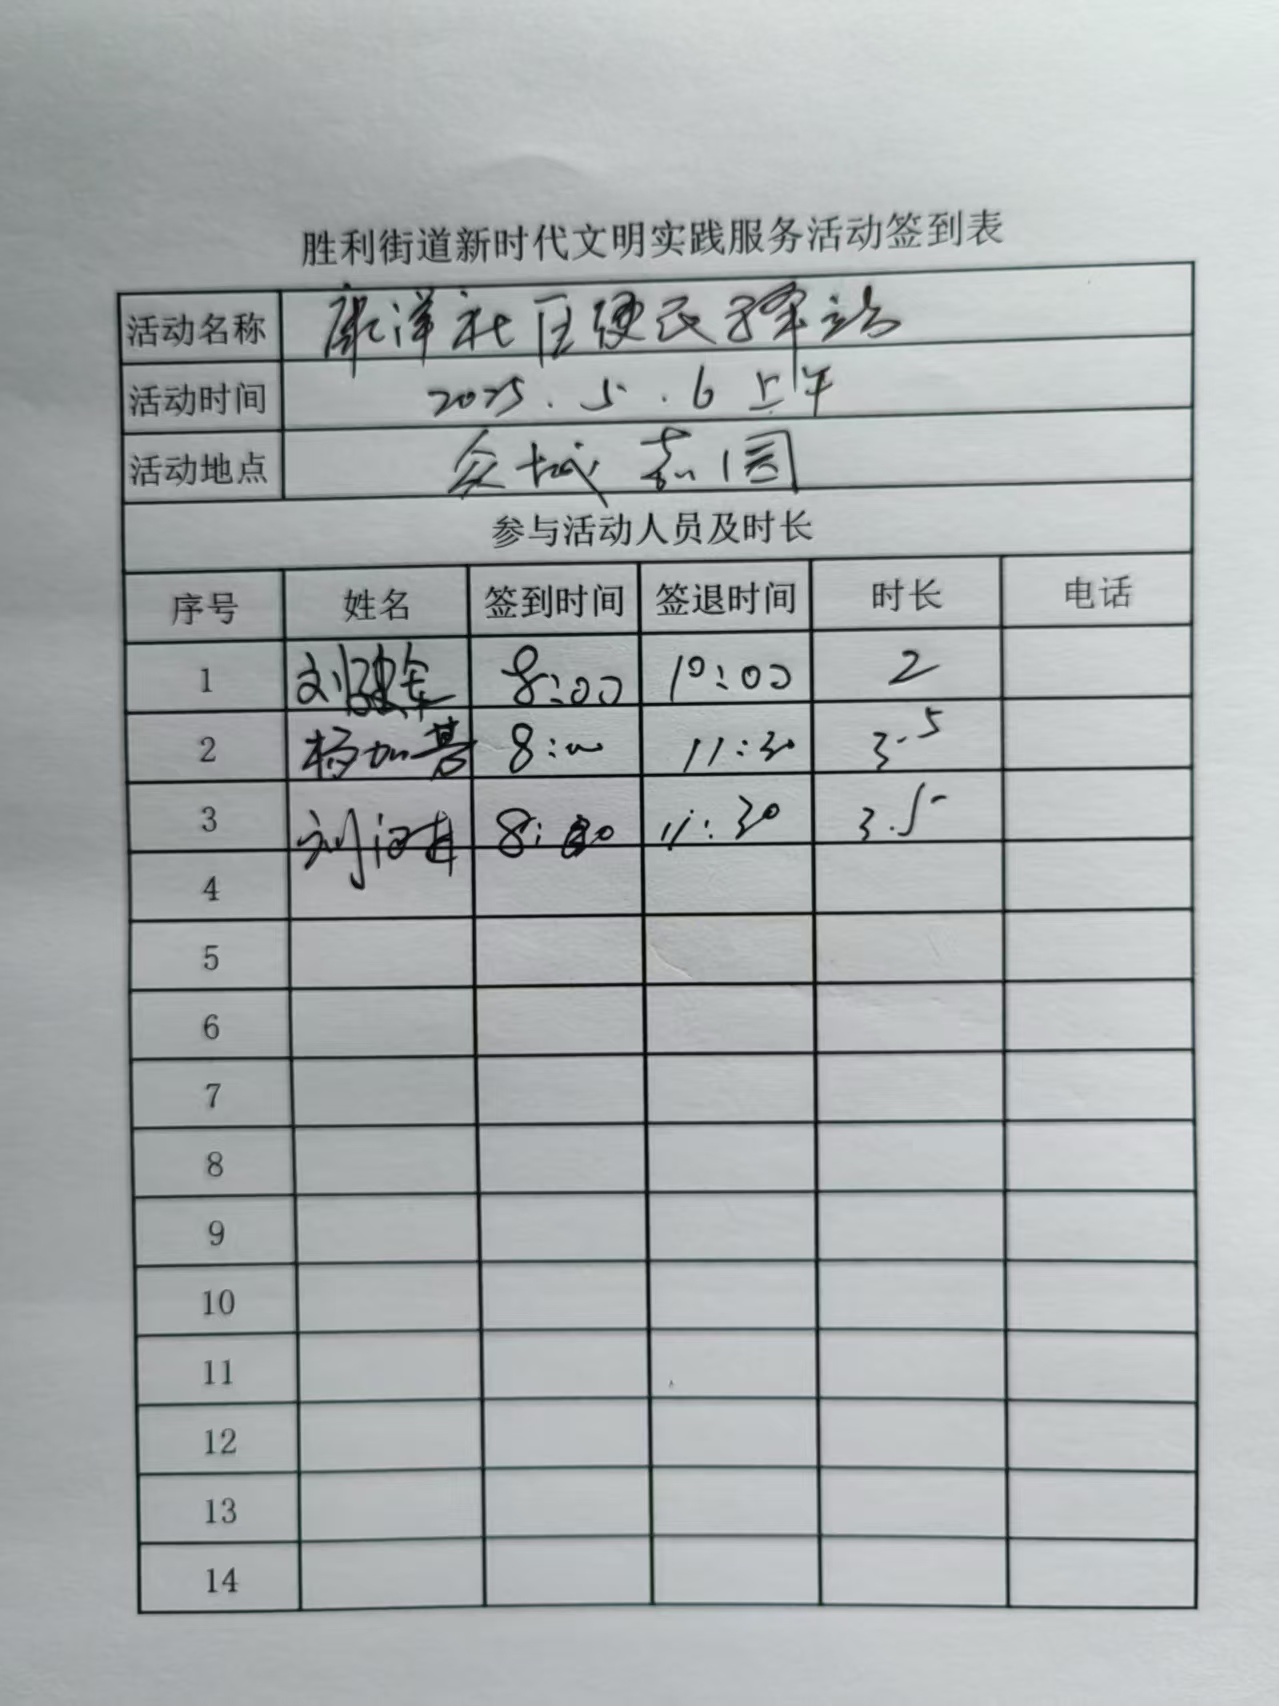 胜利街道新时代文明实践服务活动签到表
活动名称 康洋社区便民驿站
活动时间 2025.5.6上午
活动地点 众城嘉园
参与活动人员及时长
序号 姓名 签到时间 签退时间 时长 电话
1 刘建军 8:00 10:00 2
2 杨加善 8:00 11:30 3.5
3 刘 8:00 11:30 3.5
4
5
6
7
8
9
10
11
12
13
14